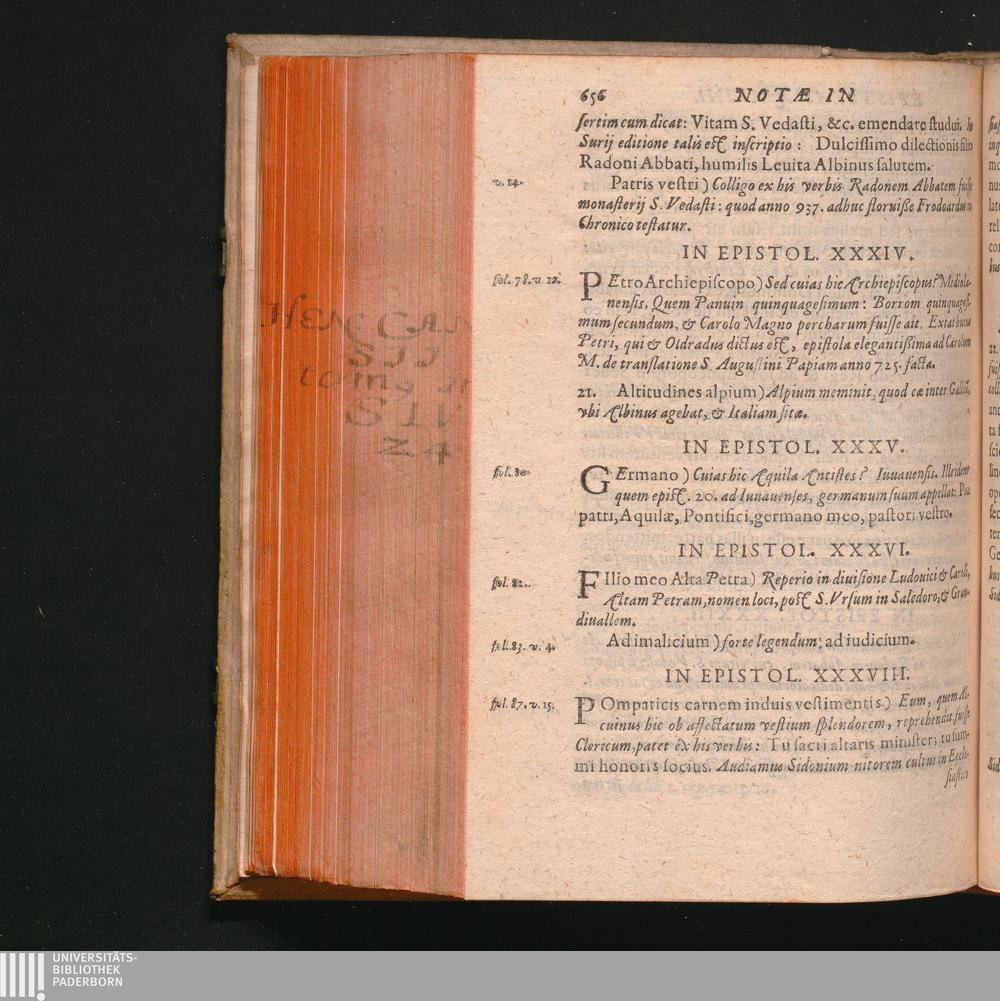 656 NOTÆ IN
sertim cum dicat: Vitam S. Vedasti, &c. emendare studui. In
Surij editione talis est inscriptio: Dulcissimo dilectionis filio
Radoni Abbati, humilis Leuita Albinus salutem.
v. 14. Patris vestri) Colligo ex his verbis Radonem Abbatem fuisse
monasterij S. Vedasti: quod anno 937. adhuc floruisse Frodoardus in
Chronico testatur.
IN EPISTOL. XXXIV.
fol. 78. v 12. PEtro Archiepiscopo) Sed cuias hic Archiepiscopus? Mediola-
nensis. Quem Panuin quinquagesimum: Borrom quinquagesi-
mum secundum, & Carolo Magno percharum fuisse ait. Extat huius
Petri, qui & Oldradus dictus est, epistola elegantißima ad Carolum
M. de translatione S. Augustini Papiam anno 725. facta.
21. Altitudines alpium) Alpium meminit, quod eæ inter Galliā,
vbi Albinus agebat, & Italiam sitæ.
IN EPISTOL. XXXV.
fol. 80. GErmano) Cuias hic Aquila Antistes? Iuuauensis. Ille idem
quem epist. 20. ad Iuuauenses, germanum suum appellat: Pio
patri, Aquilæ, Pontifici, germano meo, pastori vestro.
IN EPISTOL. XXXVI.
fol. 82. FIlio meo Alta Petra) Reperio in diuisione Ludouici & Caroli,
Altam Petram, nomen loci, post S. Vrsum in Saledoro, & Gran-
diuallem.
fol. 83. v. 4. Ad imalicium) forte legendum: ad iudicium.
IN EPISTOL. XXXVIII.
fol. 87. v. 15. POmpaticis carnem induis vestimentis) Eum, quem Al-
cuinus hic ob affectatum vestium splendorem, reprehendit, fuisse
Clericum, patet ex his verbis: Tu sacri altaris minister; tu sum-
mi honoris socius. Audiamus Sidonium nitorem cultus in Eccle-
siastico
HENR CAN
SII
tomg
SIV
24
UNIVERSITÄTS-
BIBLIOTHEK
PADERBORN